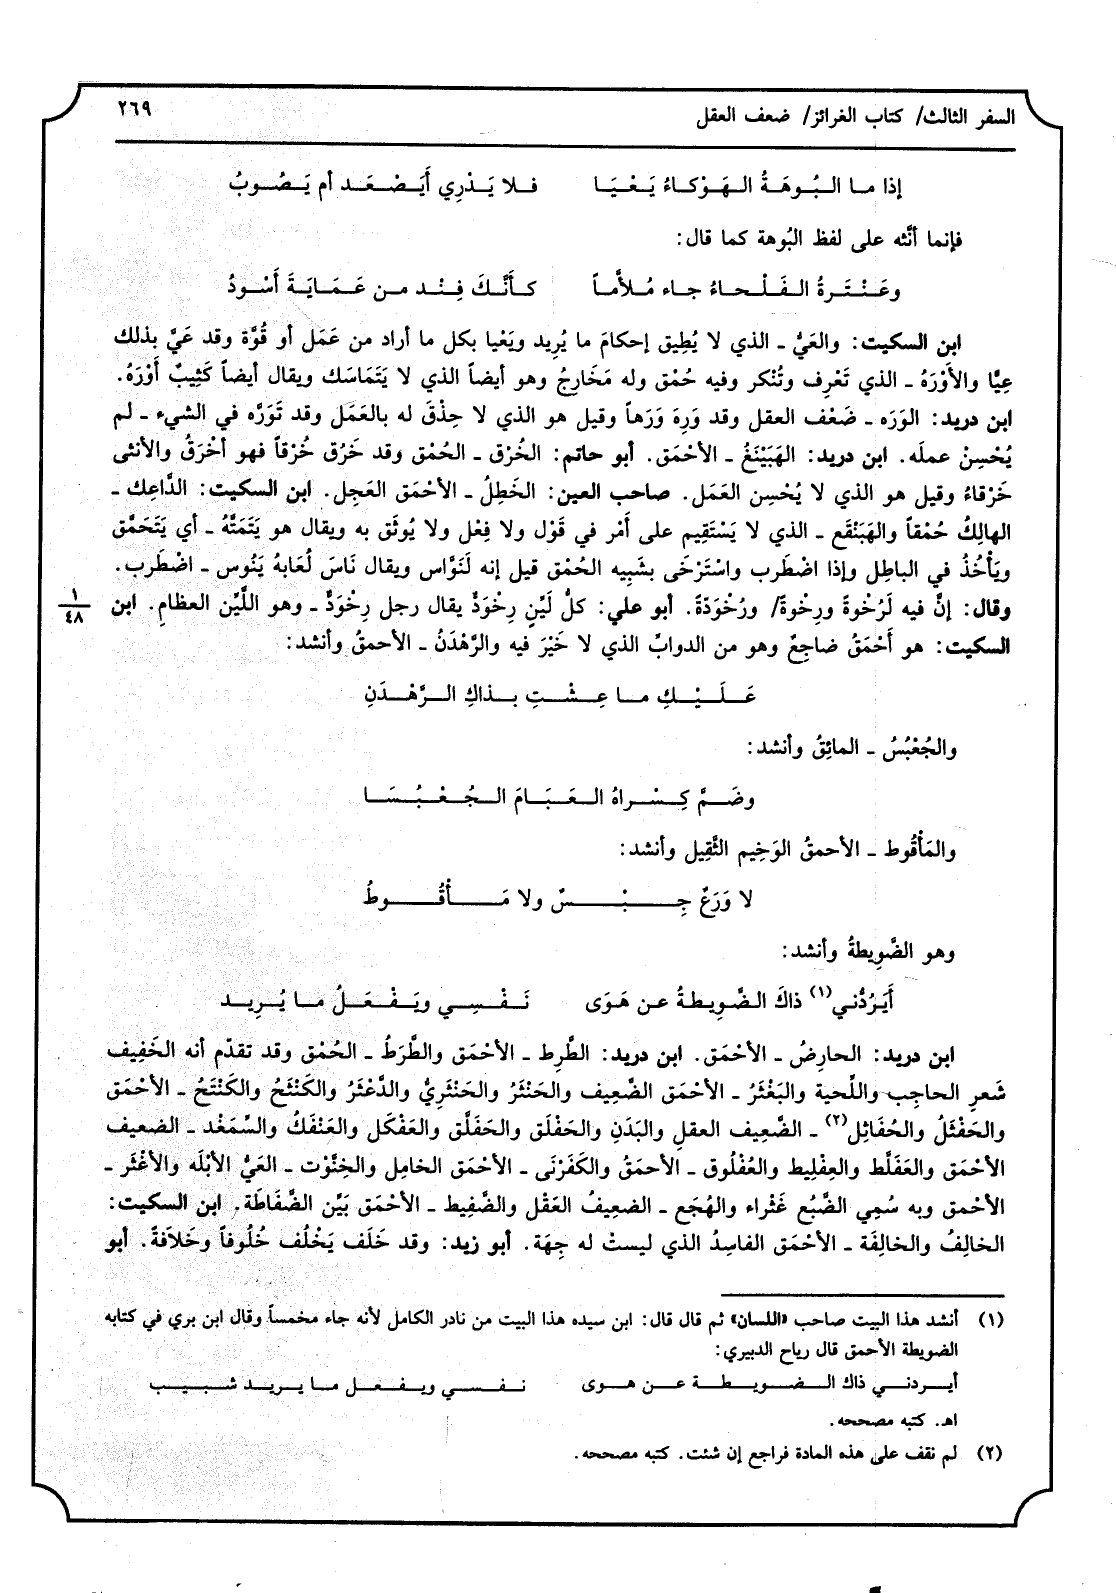 السفر الثالث/ كتاب الغرائز/ ضعف العقل ٢٦٩
إذا ما البُوهَةُ الهَوْكاءُ يَعْيَا فلا يَدْرِي أَيَصْعَد أم يَصُوبُ
فإنما أنَّثه على لفظ البُوهة كما قال:
وعَنْتَرةُ الفَلْحاءُ جاء مُلأَّماً كأَنَّكَ فِنْد من عَمَايَةَ أَسْودُ
ابن السكيت: والعَيُّ ـ الذي لا يُطِيق إحكامَ ما يُرِيد ويَعْيا بكل ما أراد من عَمَل أو قُوَّة وقد عَيَّ بذلك
عِيًّا والأوْرَهُ ـ الذي تَعْرِف وتُنْكر وفيه حُمْق وله مَخَارِجُ وهو أيضاً الذي لا يَتَماسَك ويقال أيضاً كَثِيبٌ أوْرَهُ.
ابن دريد: الوَرَه ـ ضَعْف العقل وقد وَرِهَ وَرَهاً وقيل هو الذي لا حِذْقَ له بالعَمَل وقد تَوَرَّه في الشيء ـ لم
يُحْسِنْ عملَه. ابن دريد: الهَبَيْنَغُ ـ الأحْمَق. أبو حاتم: الخُرْق ـ الحُمْق وقد خَرُق خُرْقاً فهو أخْرَقُ والأنثى
خَرْقاءُ وقيل هو الذي لا يُحْسِن العَمَل. صاحب العين: الخَطِلُ ـ الأحْمَق العَجِل. ابن السكيت: الدَّاعِك ـ
الهالِكُ حُمْقاً والهَبَنْقَع ـ الذي لا يَسْتَقِيم على أَمْر في قَوْل ولا فِعْل ولا يُوثَق به ويقال هو يَتَمَتَّهُ ـ أي يَتَحَمَّق
ويَأْخُذُ في الباطِل وإذا اضْطَرب واسْتَرْخَى بشَبِيه الحُمْق قيل إنه لَنَوَّاس ويقال نَاسَ لُعَابهُ يَنُوس ـ اضْطَرب.
وقال: إنَّ فيه لَرُخْوةً ورِخْوةً/ ورُخْوَدّةً. أبو علي: كلُّ لَيِّنٍ رِخْوَدٌّ يقال رجل رِخْوَدٌّ ـ وهو اللَّيِّن العظامِ. ابن ١/٤٨
السكيت: هو أَحْمَقُ ضاجِعٌ وهو من الدوابِّ الذي لا خَيْرَ فيه والرَّهْدَنُ ـ الأحمقُ وأنشد:
عَلَيْكِ ما عِشْتِ بذاكِ الرَّهْدَنِ
والجُعْبُسُ ـ المائِقُ وأنشد:
وضَمَّ كِسْراهُ العَبَامَ الجُعْبُسَا
والمَأْقُوط ـ الأحمقُ الوَخِيم الثَّقِيل وأنشد:
لا وَرَعٌ جِبْسٌ ولا مَأْقُوطُ
وهو الضَّوِيطةُ وأنشد:
أَيَرُدُّني(١) ذاكَ الضَّوِيطةُ عن هَوَى نَفْسِي ويَفْعَلُ ما يُرِيد
ابن دريد: الحارِضُ ـ الأحْمَق. ابن دريد: الطَّرِط ـ الأحْمَق والطَّرَطُ ـ الحُمْق وقد تقدّم أنه الخَفِيف
شَعرِ الحاجِب واللِّحية والبَغْثَرُ ـ الأحْمَق الضَّعِيف والحَنْثَرُ والحَنْثَرِيُّ والدَّعْثَرُ والكَنْثَحُ والكَنْتَحُ ـ الأحْمَق
والحَفْثَلُ والحُفَاثِل(٢) ـ الضَّعِيف العقلِ والبَدَنِ والحَفْلَق والحَفَلَّق والعَفْكَل والعَنْفَكُ والسَّمَغْد ـ الضعيف
الأحْمَق والعَفَلَّط والعِفْلِيط والعُفْلُوق ـ الأحمَقُ والكَفَرْنَى ـ الأحْمَق الخامِل والخِنَّوْت ـ العَيُّ الأبْلَه والأغْثَر ـ
الأحْمق وبه سُمِي الضَّبُع غَثْراء والهُجَع ـ الضعِيفُ العَقْل والضَّفِيط ـ الأحْمَق بَيِّن الضَّفَاطَة. ابن السكيت:
الخالِفُ والخالِفَة ـ الأحْمَق الفاسِدُ الذي ليستْ له جِهَة. أبو زيد: وقد خَلَف يَخْلُف خُلُوفاً وخَلافَةً. أبو
(١) أنشد هذا البيت صاحب «اللسان» ثم قال قال: ابن سيده هذا البيت من نادر الكامل لأنه جاء مخمساً وقال ابن بري في كتابه
الضويطة الأحمق قال رياح الدبيري:
أيردني ذاك الضويطة عن هوى نفسي ويفعل ما يريد شبيب
اهـ. كتبه مصححه.
(٢) لم نقف على هذه المادة فراجع إن شئت. كتبه مصححه.